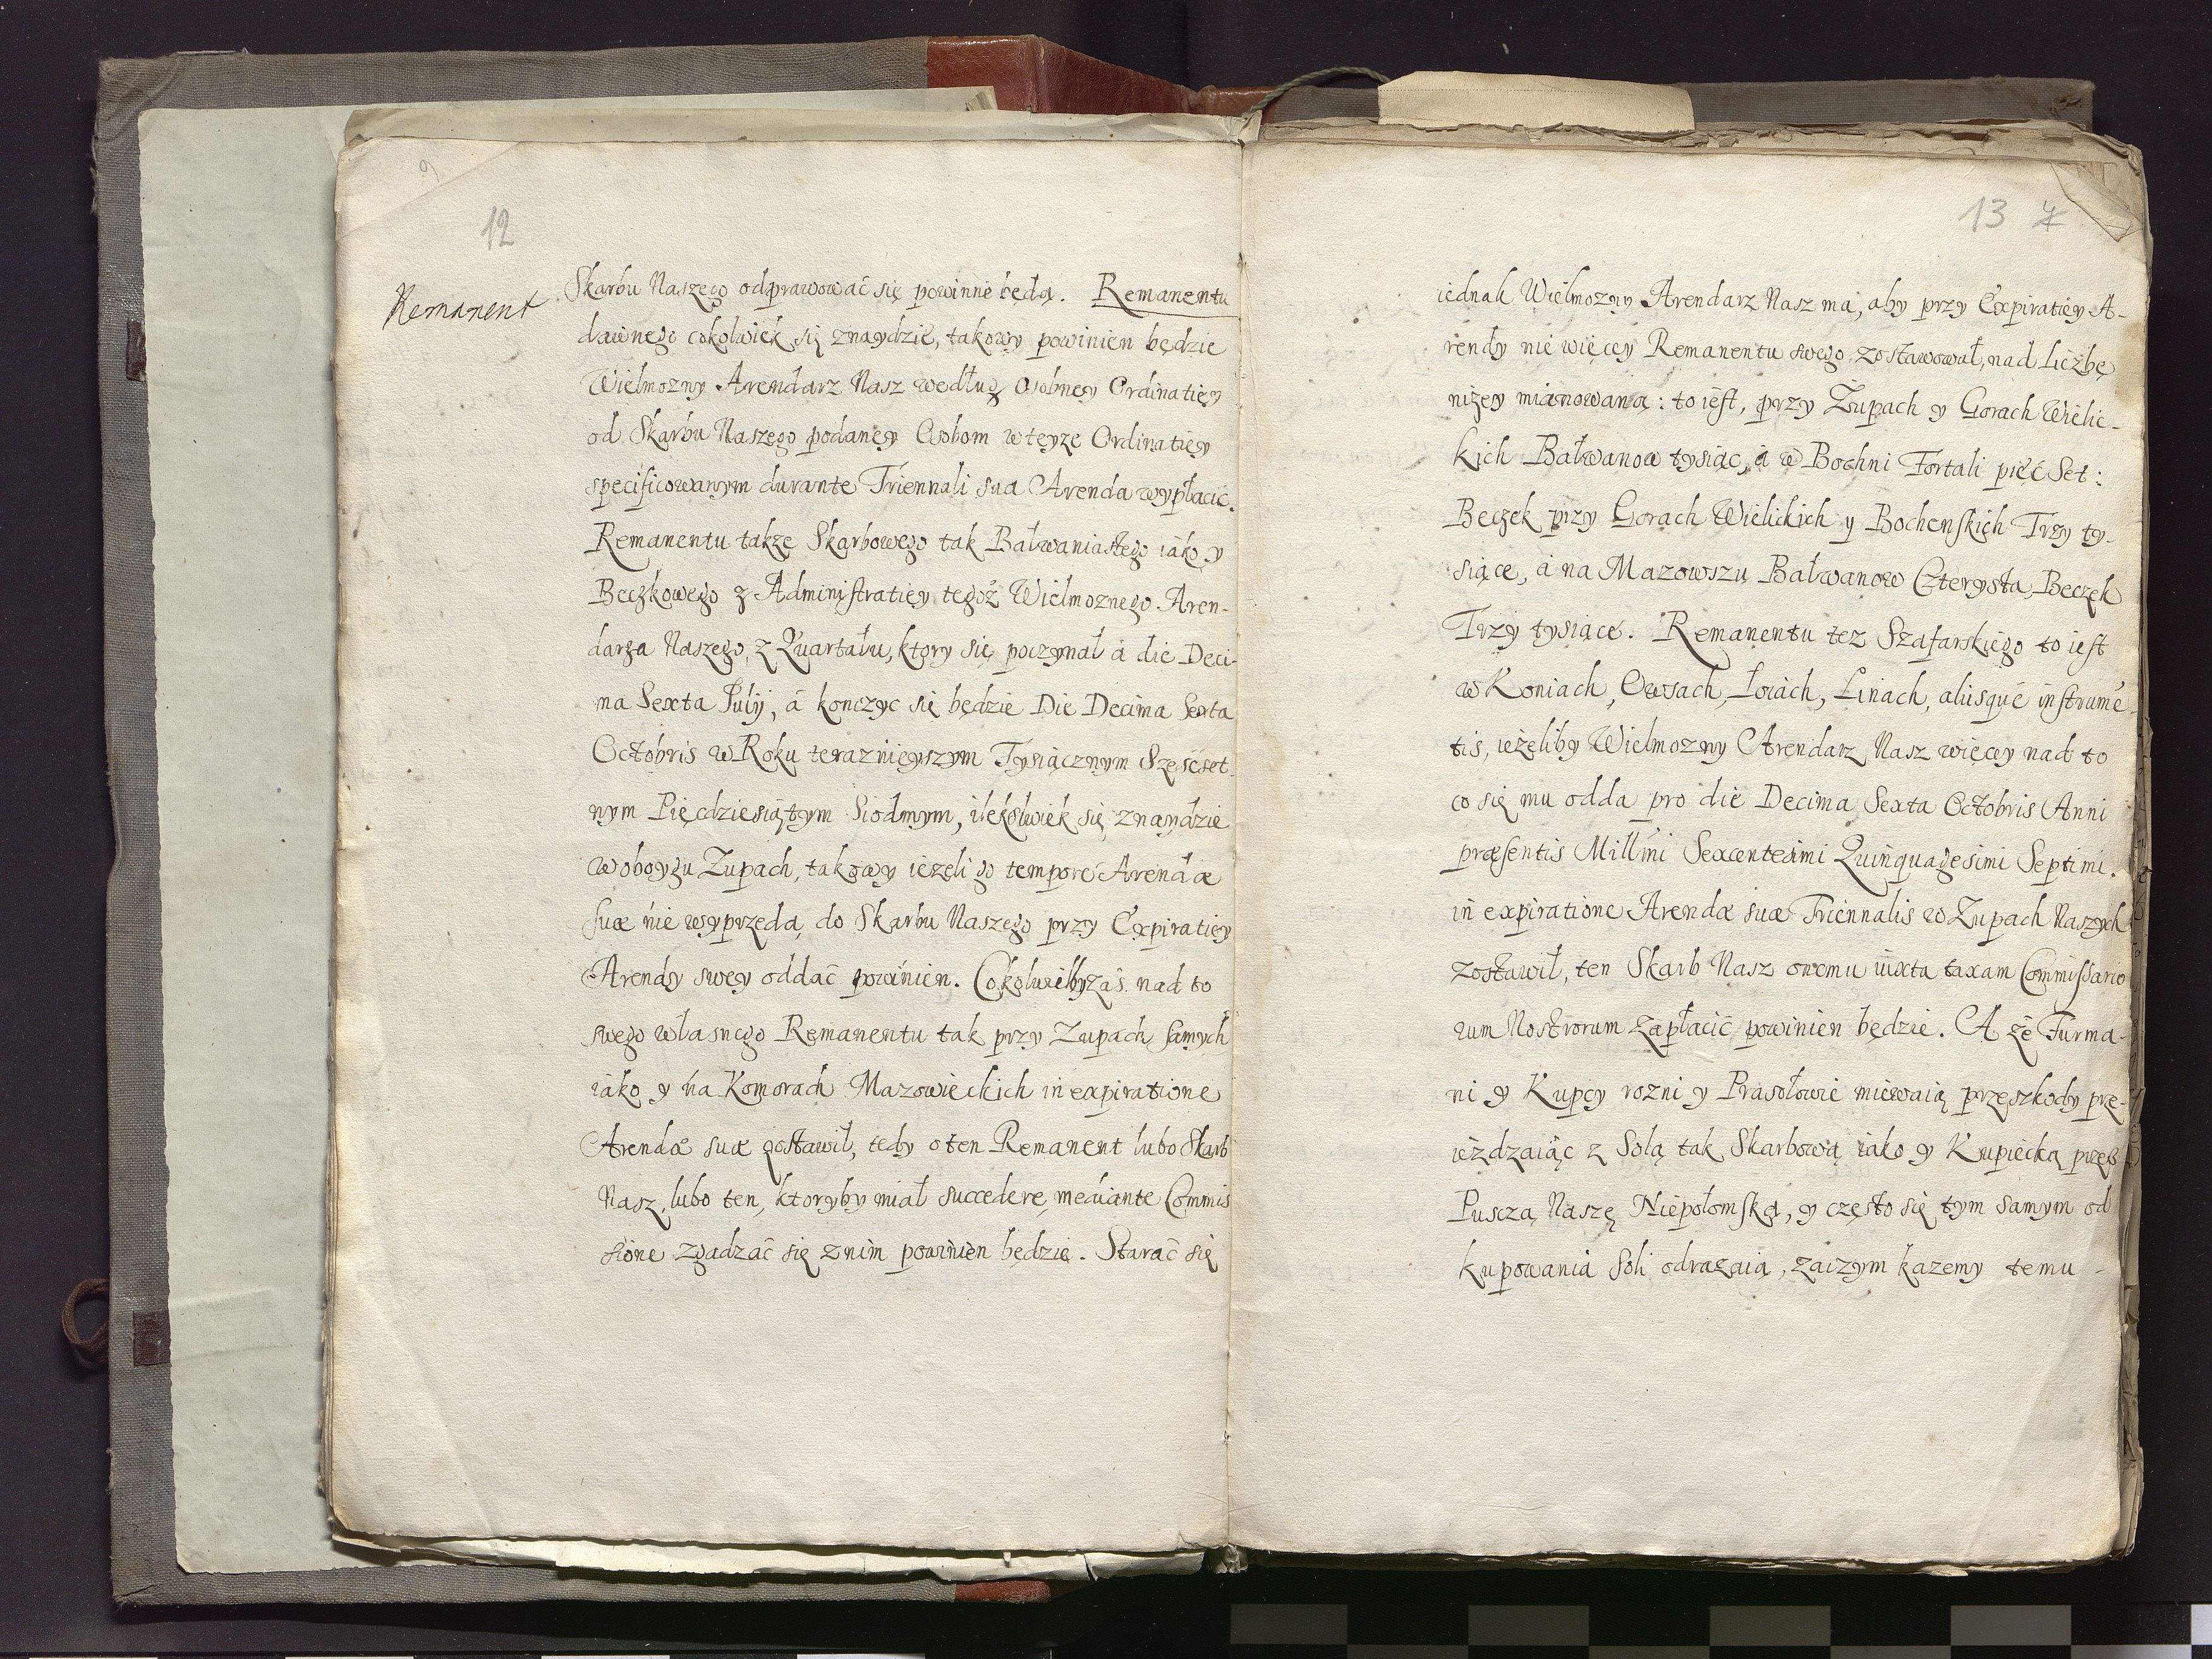 9
12
Remanent
Skarbu Naszego odprawować się powinne będą. Remanentu
dawnego cokolwiek się znaydzie, takowy powinien będzie
Wielmozny Arendarz Nasz według Osobney Ordinatiey
od Skarbu Naszego podaney Osobom w teyze Ordinatiey
specificowanym durante Triennali sua Arenda wypłacic.
Remanentu takze Skarbowego tak Bałwaniastego iako y
Beczkowego z Administratiey tegoż Wielmoznego Aren-
darza Naszego, z Quartału, ktory się poczynał á die Deci-
ma Sexta Julij, á konczyc się będzie Die Decima Sexta
Octobris w Roku teraznieyszym Tysiącznym Szescset-
nym Pięcdziesiątym Siodmym, ilekolwiek się znaydzie
w oboygu Zupach, takowy iezeli go tempore Arendæ
suæ nie wyprzeda, do Skarbu Naszego przy Expiratiey
Arendy swey oddać powinien. Cokolwielbyzaś nad to
swego własnego Remanentu tak przy Zupach samych
iako y na Komorach Mazowieckich in expiratione
Arendæ suæ zostawił, tedy o ten Remanent lubo Skarb
Nasz, lubo ten, ktoryby miał succedere, mediante Commis
sione zgadzać się z nim powinien będzie. Starać się
13 7
iednak Wielmozny Arendarz Nasz ma, aby przy Expiratiey A-
rendy nie więcey Remanentu swego zostawował, nad liczbę
niżey mianowaną: to iest, przy Żupach y Gorach Wielic-
kich Bałwanow tysiąc, á w Bochni Fortali pięć Set:
Beczek przy Gorach Wielickich y Bochenskich Trzy ty-
siące, á na Mazowszu Bałwanow Czterysta, Beczek
Trzy tysiące. Remanentu tez Szafarskiego to iest
w Koniach, Owsach, Łoiach, Linach, aliisque instrumē
tis, ieżeliby Wielmozny Arendarz Nasz więcey nad to
co się mu odda pro die Decima Sexta Octobris Anni
præsentis Millmi Sexcentesimi Quinquagesimi Septimi.
in expiratione Arendæ suæ Triennalis w Zupach Naszych
zostawił, ten Skarb Nasz onemu iuxta taxam Commissario
rum Nostrorum zapłacić powinien będzie. A że Furma-
ni y Kupcy rozni y Prasołowie miewaią przeszkody prze-
ieżdzaiąc z Solą tak Skarbową iako y Kupiecką przez
Puszcza Naszę Niepołomską, y często się tym samym od
kupowania Soli odrazaią, zaczym kazemy temu -